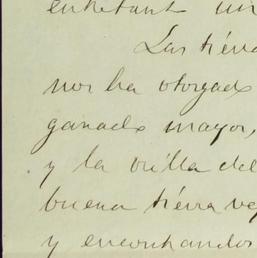 entretant un
Las tierra
nos ha otorgado
ganado mayor,
y la orilla del
buena tierra ve
y encontrandos